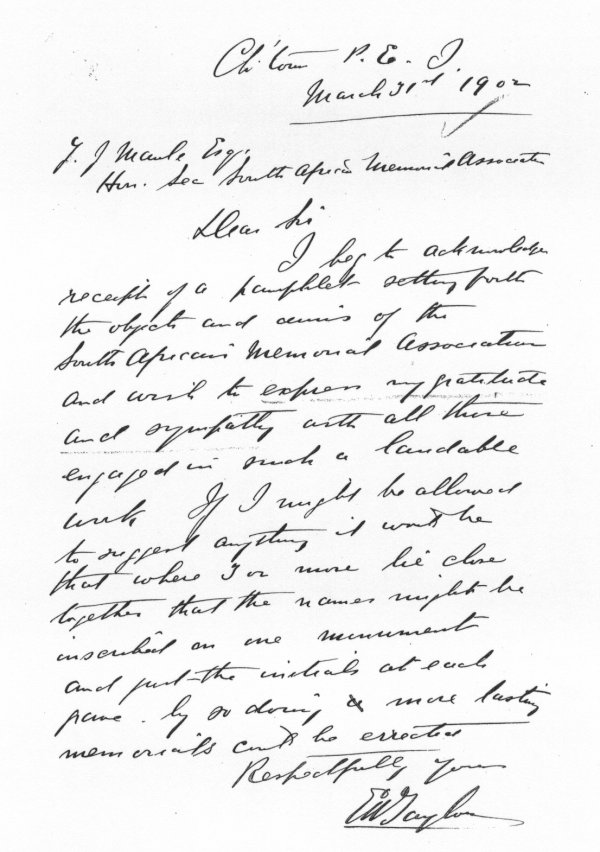 Ch'town P. E. I.
March 31st 1902
Hon. Sec South African Memorial Association
Dear Sir
I beg to acknowledge
receipt of a pamphlet setting forth
the objects and aims of the
South African Memorial Association
and wish to express my gratitude
and sympathy with all those
engaged in such a laudable
work If I might be allowed
to suggest anything it would be
that where 3 or more lie close
together that the names might be
inscribed on one monument
and put the initials at each
by so doing more lasting
memorials could be errected
Respectfully yours
EW Taylor